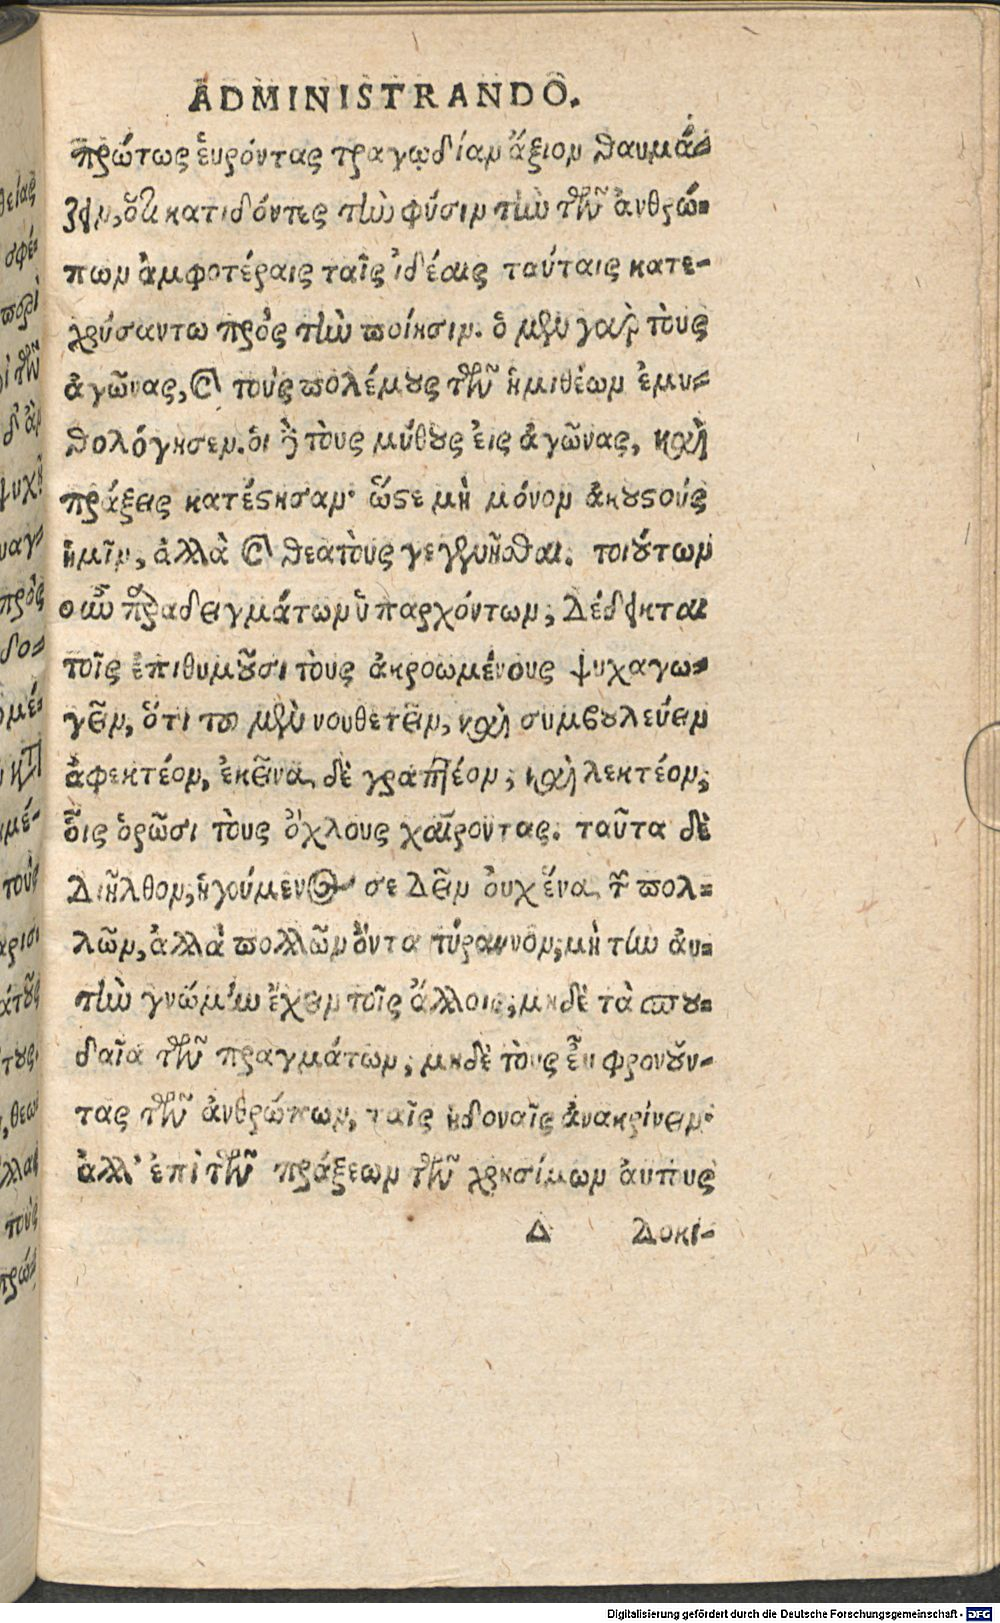 ADMINISTRANDO.
πρώτως ἑυρόντας τραγῳδίαν ἄξιον θαυμά-
ζειν, ὅτι κατιδόντες τὴν φύσιν τὴν τῶν ἀνθρώ-
πων ἀμφοτέραις ταῖς ἰδέαις ταύταις κατε-
χρύσαντω πρὸς τὴν ποίησιν. ὁ μὲν γὰρ τοὺς
ἀγῶνας, καὶ τοὺς πολέμους τῶν ἡμιθέων ἐμυ-
θολόγησεν. ὁι δὲ τοὺς μύθους ἐις ἀγῶνας, καὶ
πράξεις κατέστησαν· ὥστε μὴ μόνον ἀκουστοὺς
ἡμῖν, ἀλλὰ καὶ θεατοὺς γεγενῆσθαι. τοιούτων
οὖν παραδειγμάτων ὑπαρχόντων, δέδεικται
τοῖς ἐπιθυμοῦσι τοὺς ἀκροωμένους ψυχαγω-
γεῖν, ὅτι το μὲν νουθετεῖν, καὶ συμβουλεύειν
ἀφεκτέον, ἐκεῖνα δὲ γραπτέον, καὶ λεκτέον,
οἷς ὁρῶσι τοὺς ὄχλους χαίροντας. ταῦτα δὲ
διῆλθον, ἡγούμενος σε δεῖν ὀυχ ἕνα τῶν πολ-
λῶν, ἀλλὰ πολλῶν ὄντα τύραννον, μὴ τὴν ἀυ-
τὴν γνώμην ἔχειν τοῖς ἄλλοις, μηδὲ τὰ σπου-
δαῖα τῶν πραγμάτων, μηδὲ τοὺς ἐυ φρονοῦν-
τας τῶν ἀνθρώπων, ταῖς ἡδοναῖς ἀνακρίνειν·
ἀλλ' ἐπὶ τῶν πράξεων τῶν χρησίμων ἀυτοὺς
Δ δοκι-
Digitalisierung gefördert durch die Deutsche Forschungsgemeinschaft - DFG